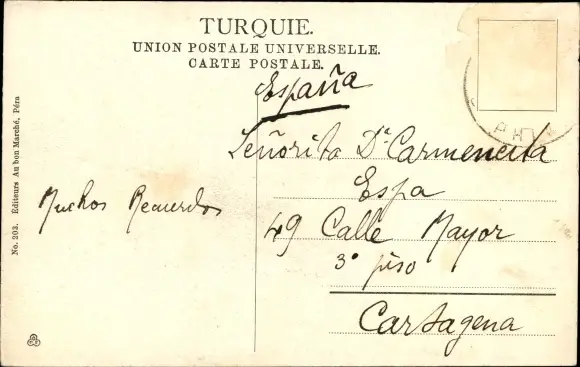 TURQUIE.
UNION POSTALE UNIVERSELLE.
CARTE POSTALE.
España
Señorita Dª Carmencita
Espa
49 Calle Mayor
3º piso
Cartagena
Muchos Recuerdos
No. 203. Editeurs Au bon Marché, Péra